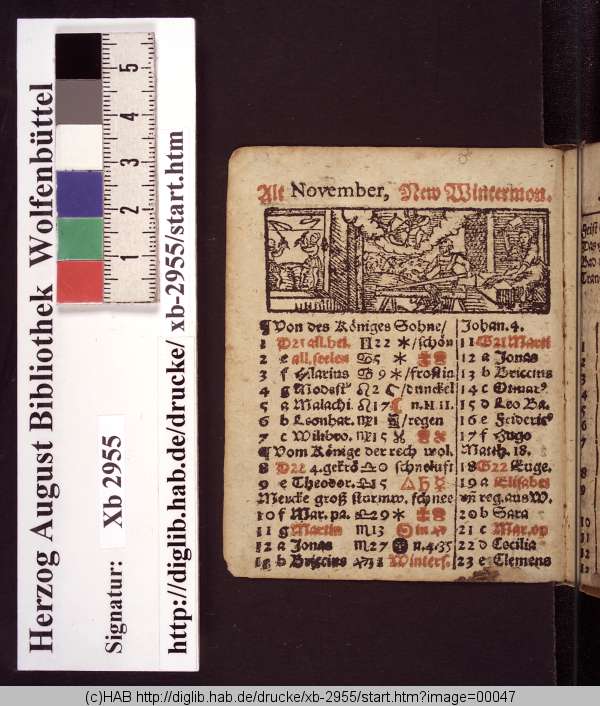 Herzog August Bibliothek Wolfenbüttel
Signatur: Xb 2955
http://diglib.hab.de/drucke/ xb-2955/start.htm
1 2 3 4 5
Alt November, New Wintermon.
¶ Von des Königes Sohne/ Johan. 4.
1 D21 all. hei. 22 /schön 11 G21 Marti
2 e all. seelen 5 12 a Jonas
3 f Hlarius 9 /frostin 13 b Briccius
4 g Modest 2 /dunckel 14 c Otmar
5 a Malachi. 17 n. 11. 15 d Leo Ba.
6 b Leonhar. 1 /regen 16 e Frideric
7 c Wilibro. 15 17 f Hugo
¶ Vom Könige der rech wol. Matth. 18.
8 D22 4. gekrö 0 schneluft 18 G22 Euge.
9 e Theodor. 15 19 a Elisabet
Mercke groß sturmw. schnee reg. aus W.
10 f Mar. pa. 29 20 b Sara
11 g Martin 13 in 21 c Mar. op
12 a Jonas 27 n. 4.35 22 d Cecilia
13 b Briccius 11 Winterf. 23 e Clemens
(c)HAB http://diglib.hab.de/drucke/xb-2955/start.htm?image=00047